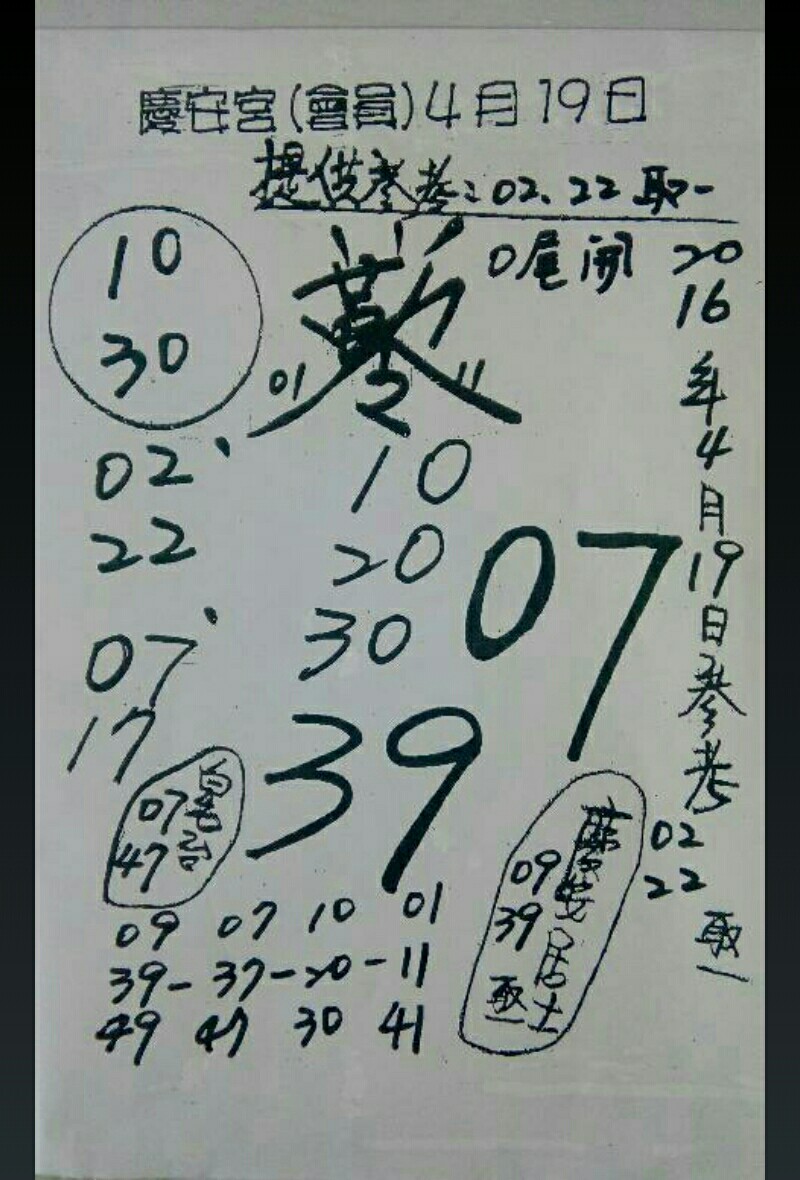 慶安宮(會員)4月19日
提供參考:02、22取一
10
30
0尾開
01
11
2016年4月19日參考
02
22
取一
02、
22
10
20
30
07
07、
17
39
07
47
慶安居士
09
39
取一
09 07 10 01
39-37-20-11
49 47 30 41